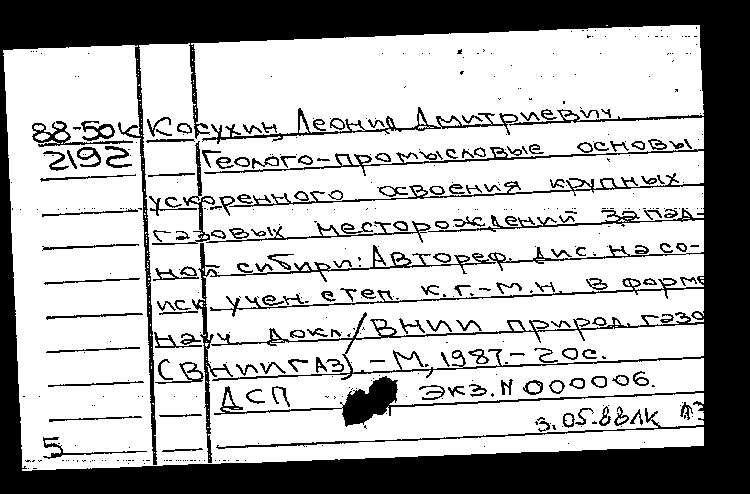 88-50к Косухин, Леонид Дмитриевич.
2192 Геолого-промысловые основы
ускоренного освоения крупных
газовых месторождений Запад-
ной Сибири: Автореф. дис. на со-
иск. учен. степ. к.г.-м.н. в форме
науч. докл. / ВНИИ природ. газо
(ВНИИГАЗ). - М., 1987. - 20с.
ДСП Экз. N 000006.
3.05.88 ЛК
5